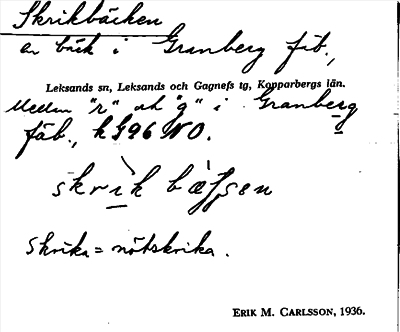 Skrikbäcken
en bäck i Granberg fäb.,
Leksands sn, Leksands och Gagnefs tg, Kopparbergs län.
Mellan "r" och "g" i Granberg
fäb., k 596 NO.
skrik bæssen
Skrika = nötskrika.
ERIK M. CARLSSON, 1936.